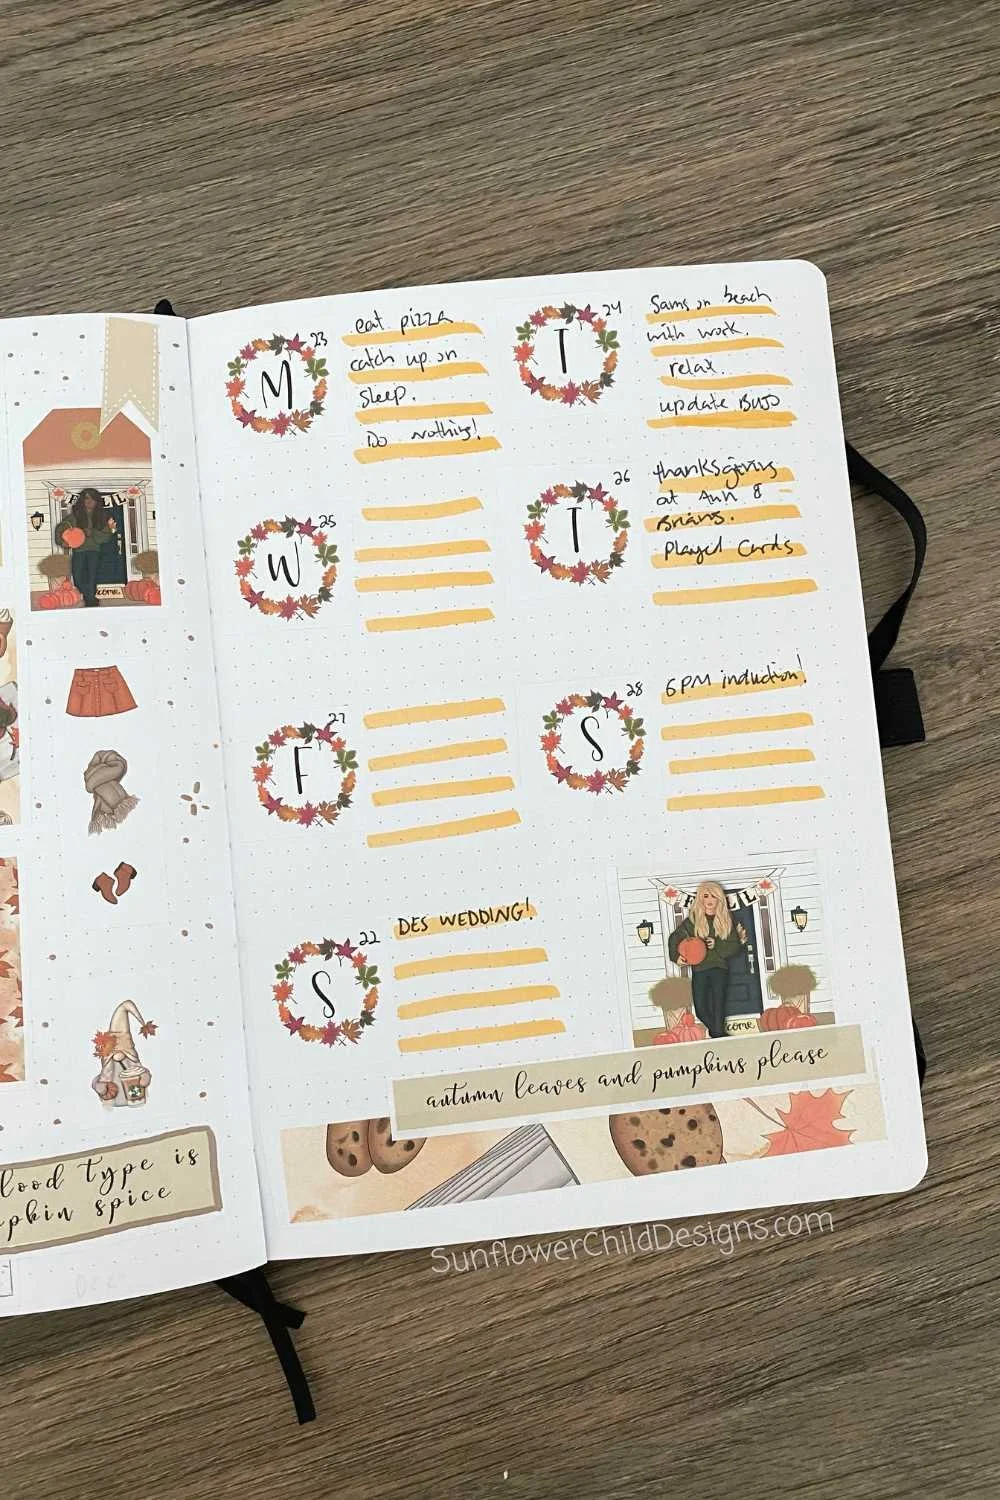 M
23
eat pizza
catch up on
sleep.
Do nothing!
T
24
Sams on beach
with work.
relax
update BUJO
W
25
T
26
thanksgiving
at Ann &
Brians.
Played Cards
F
27
S
28
6PM induction!
S
22
DES WEDDING!
FALL
come
autumn leaves and pumpkins please
lood type is
pkin spice
SunflowerChildDesigns.com